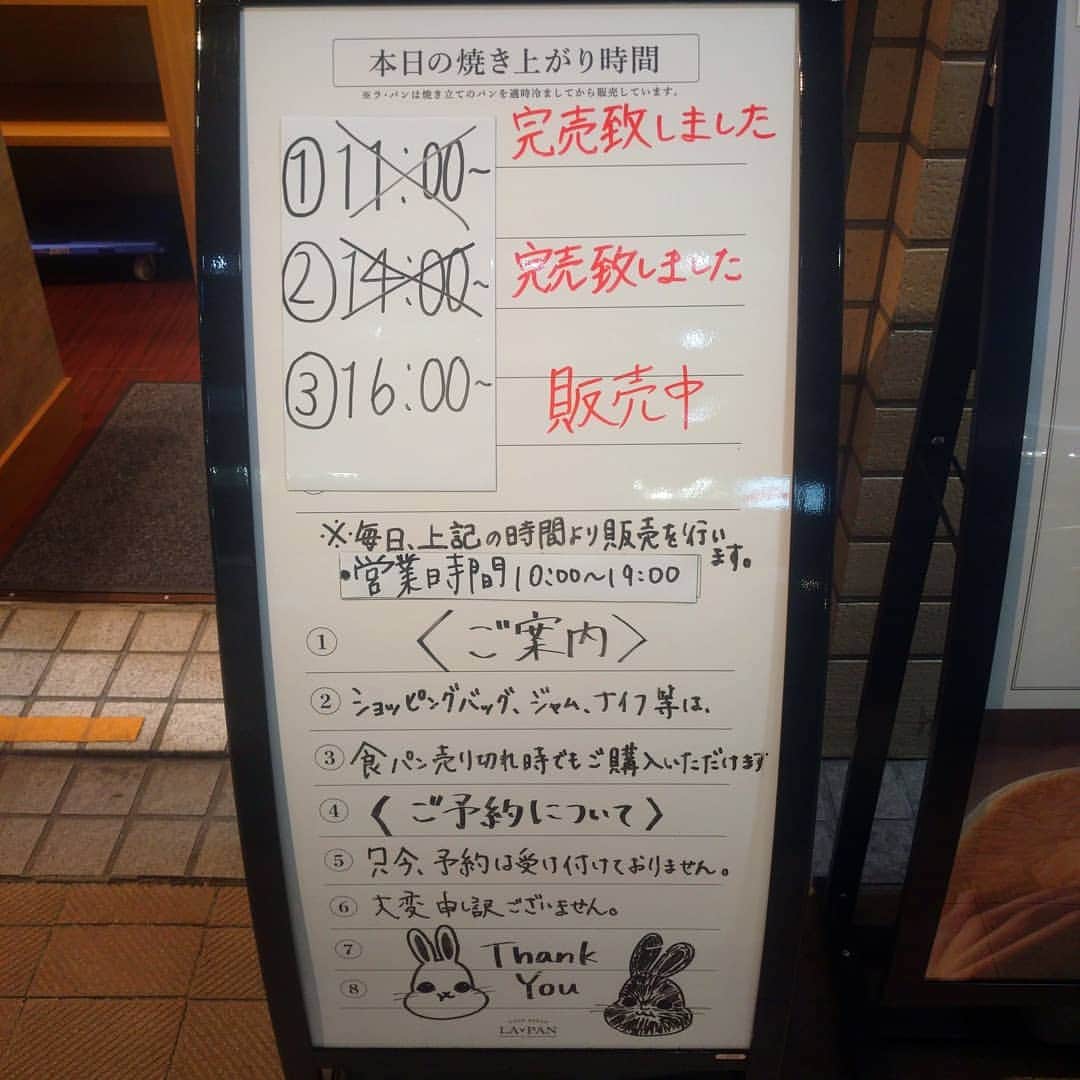 本日の焼き上がり時間
※ラ・パンは焼き立てのパンを適時冷ましてから販売しています。
①11:00~ 完売致しました
②14:00~ 完売致しました
③16:00~ 販売中
※毎日、上記の時間より販売を行います。
・営業時間10:00~19:00
① 〈ご案内〉
② ショッピングバッグ、ジャム、ナイフ等は、
③ 食パン売り切れ時でもご購入いただけます
④ 〈ご予約について〉
⑤ 只今、予約は受け付けておりません。
⑥ 大変申し訳ございません。
⑦ Thank
⑧ You
LA・PAN